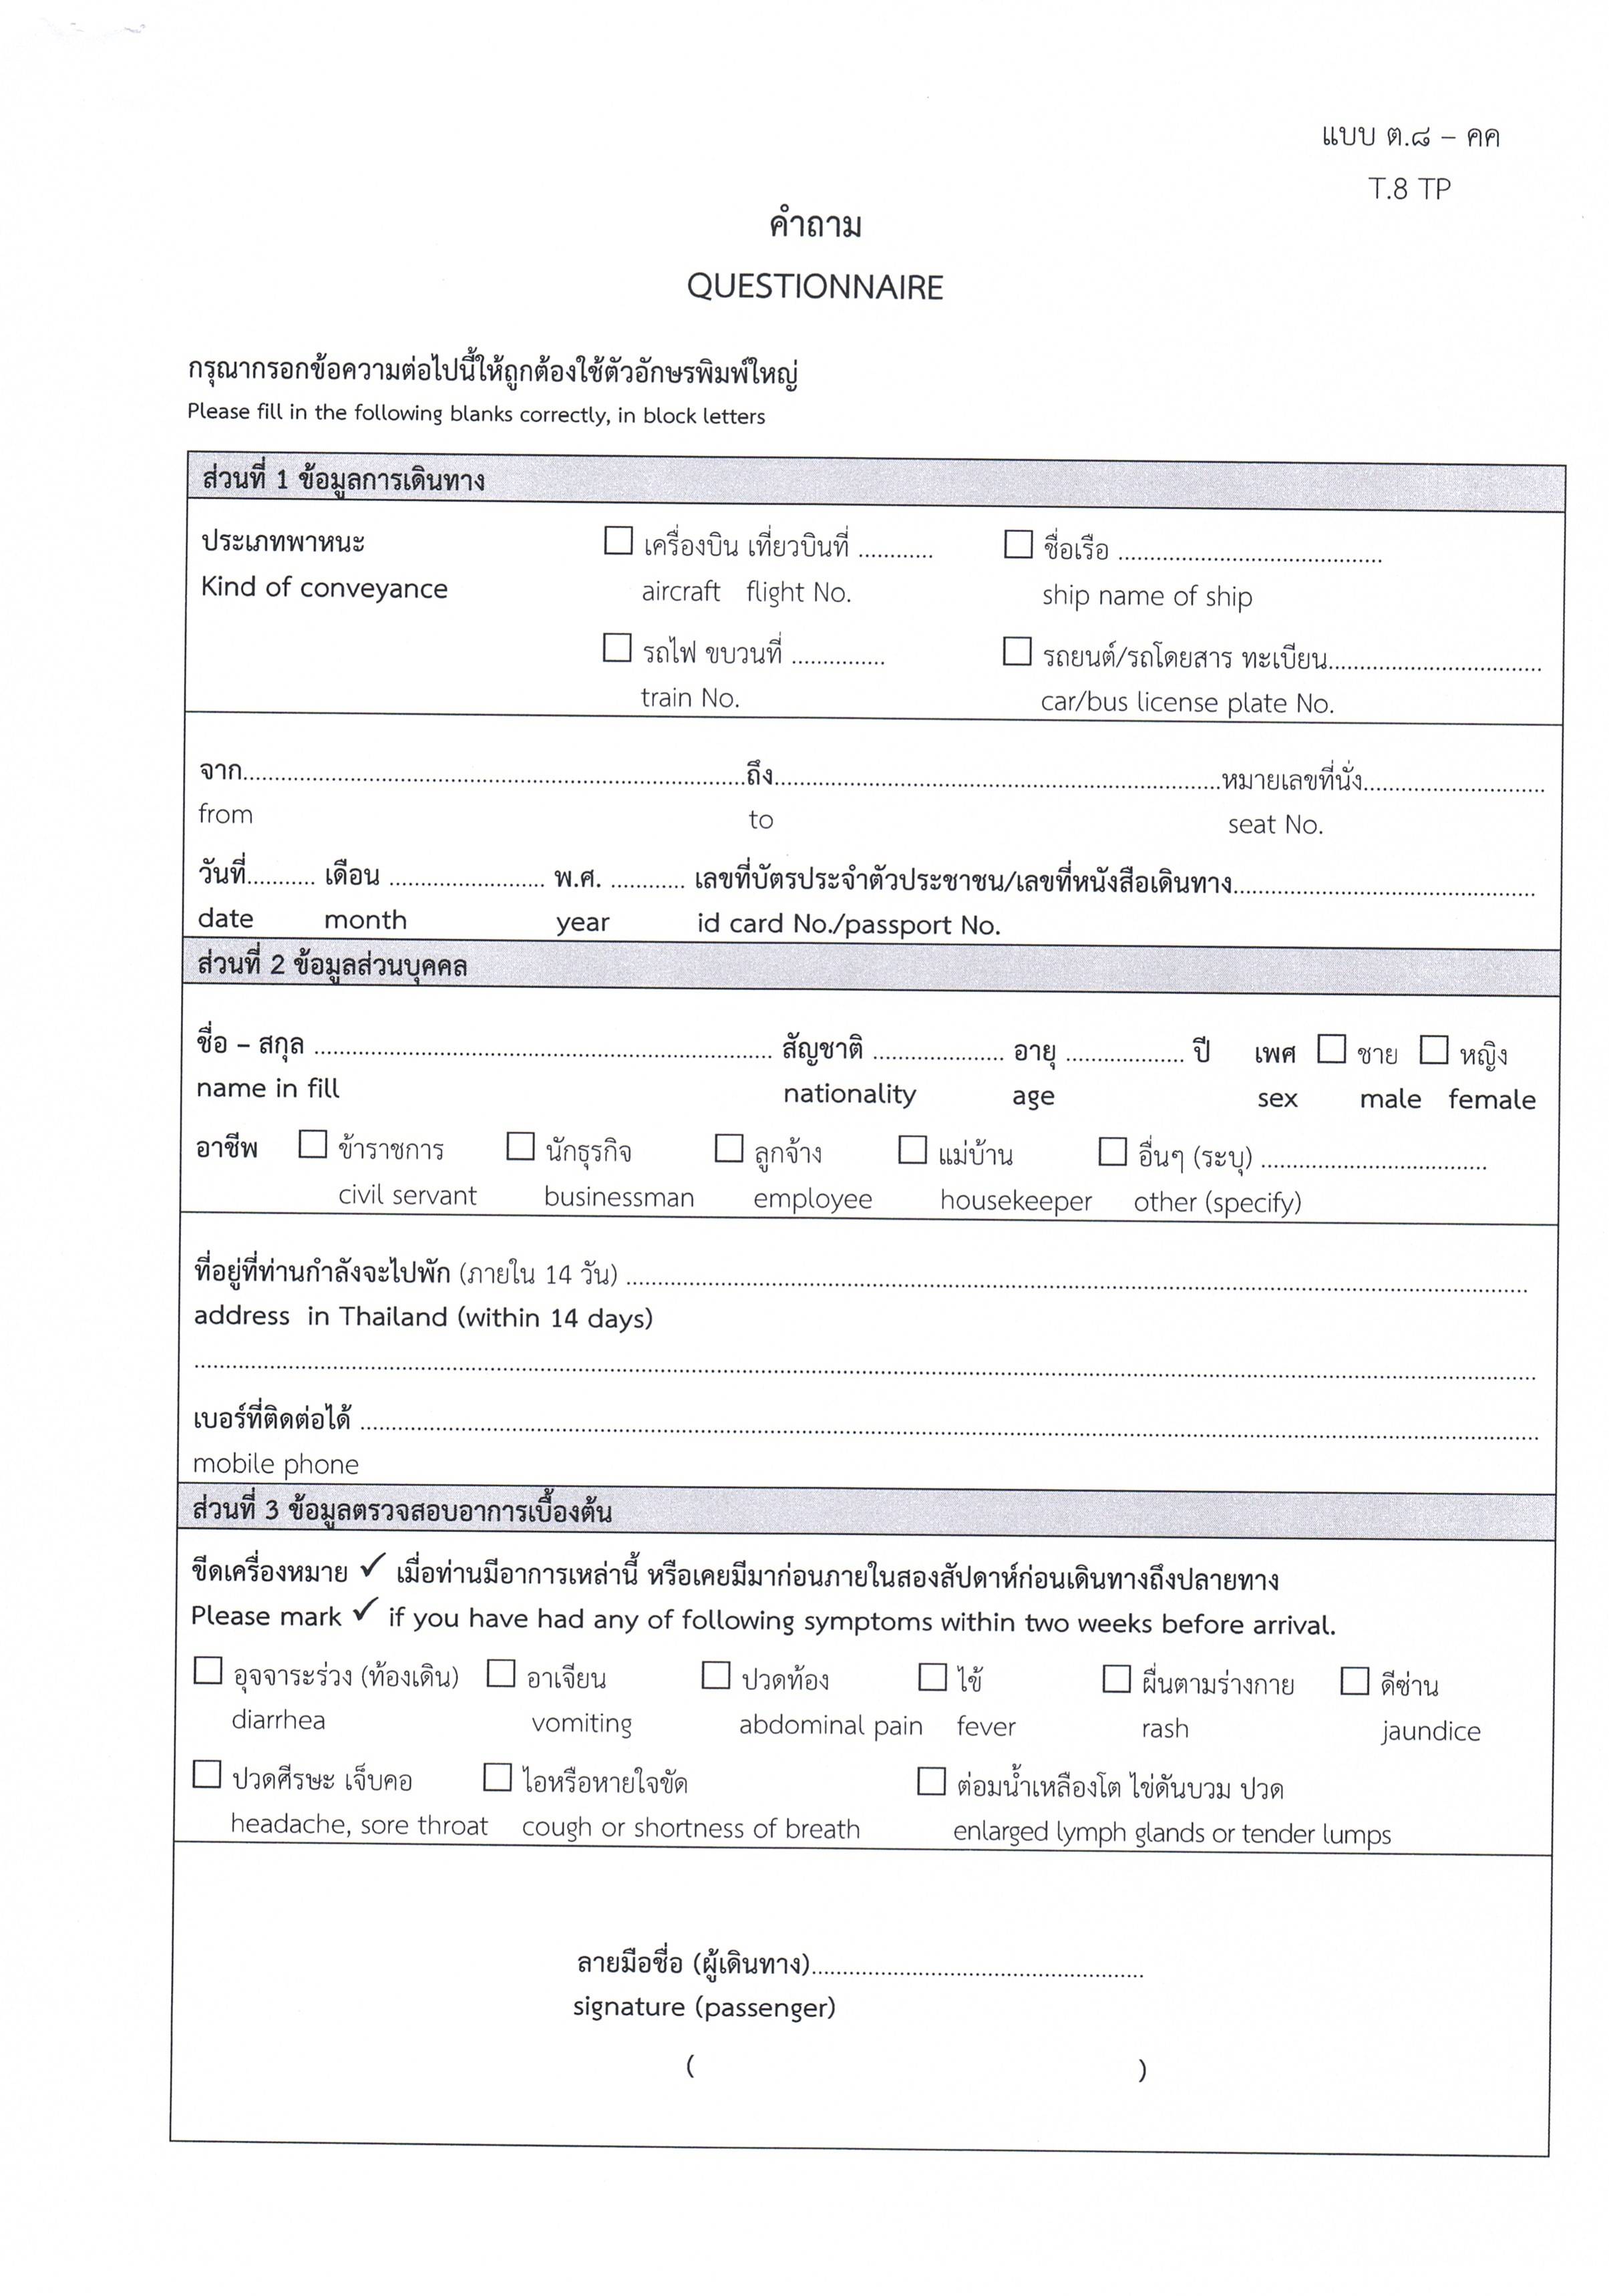 แบบ ต.๘ – คค
T.8 TP
คำถาม
QUESTIONNAIRE
กรุณากรอกข้อความต่อไปนี้ให้ถูกต้องใช้ตัวอักษรพิมพ์ใหญ่
Please fill in the following blanks correctly, in block letters
ส่วนที่ 1 ข้อมูลการเดินทาง
ประเภทพาหนะ ☐ เครื่องบิน เที่ยวบินที่ ............ ☐ ชื่อเรือ ......................................
Kind of conveyance aircraft flight No. ship name of ship
☐ รถไฟ ขบวนที่ .............. ☐ รถยนต์/รถโดยสาร ทะเบียน................................
train No. car/bus license plate No.
จาก................................................................ถึง................................................................หมายเลขที่นั่ง..........................
from to seat No.
วันที่.......... เดือน ....................... พ.ศ. ........... เลขที่บัตรประจำตัวประชาชน/เลขที่หนังสือเดินทาง............................................
date month year id card No./passport No.
ส่วนที่ 2 ข้อมูลส่วนบุคคล
ชื่อ – สกุล ................................................................ สัญชาติ ................... อายุ ................. ปี เพศ ☐ ชาย ☐ หญิง
name in fill nationality age sex male female
อาชีพ ☐ ข้าราชการ ☐ นักธุรกิจ ☐ ลูกจ้าง ☐ แม่บ้าน ☐ อื่นๆ (ระบุ) .................................
civil servant businessman employee housekeeper other (specify)
ที่อยู่ที่ท่านกำลังจะไปพัก (ภายใน 14 วัน) ................................................................................
address in Thailand (within 14 days)
................................................................................................................................
เบอร์ที่ติดต่อได้ ................................................................................................................
mobile phone
ส่วนที่ 3 ข้อมูลตรวจสอบอาการเบื้องต้น
ขีดเครื่องหมาย ✓ เมื่อท่านมีอาการเหล่านี้ หรือเคยมีมาก่อนภายในสองสัปดาห์ก่อนเดินทางถึงปลายทาง
Please mark ✓ if you have had any of following symptoms within two weeks before arrival.
☐ อุจจาระร่วง (ท้องเดิน) ☐ อาเจียน ☐ ปวดท้อง ☐ ไข้ ☐ ผื่นตามร่างกาย ☐ ดีซ่าน
diarrhea vomiting abdominal pain fever rash jaundice
☐ ปวดศีรษะ เจ็บคอ ☐ ไอหรือหายใจขัด ☐ ต่อมน้ำเหลืองโต ไข่ดันบวม ปวด
headache, sore throat cough or shortness of breath enlarged lymph glands or tender lumps
ลายมือชื่อ (ผู้เดินทาง)................................................
signature (passenger)
( )